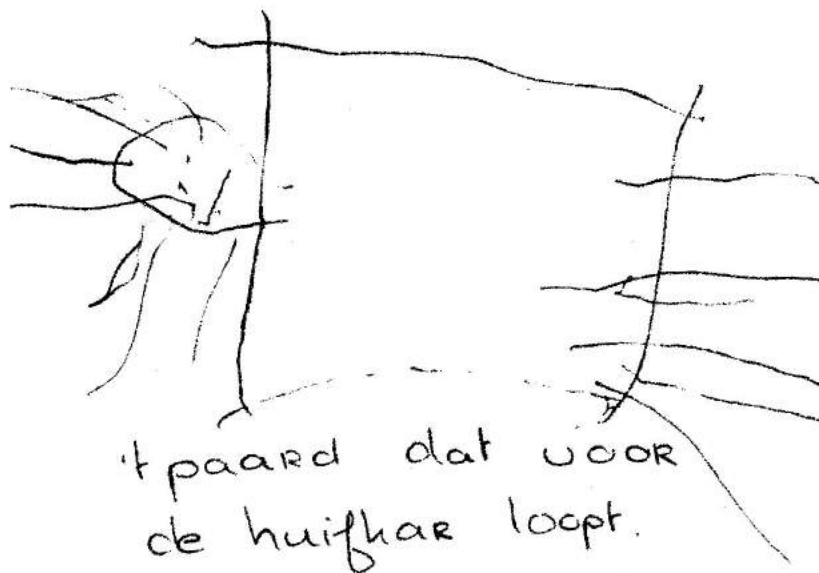 't paard dat voor
de huifkar loopt.